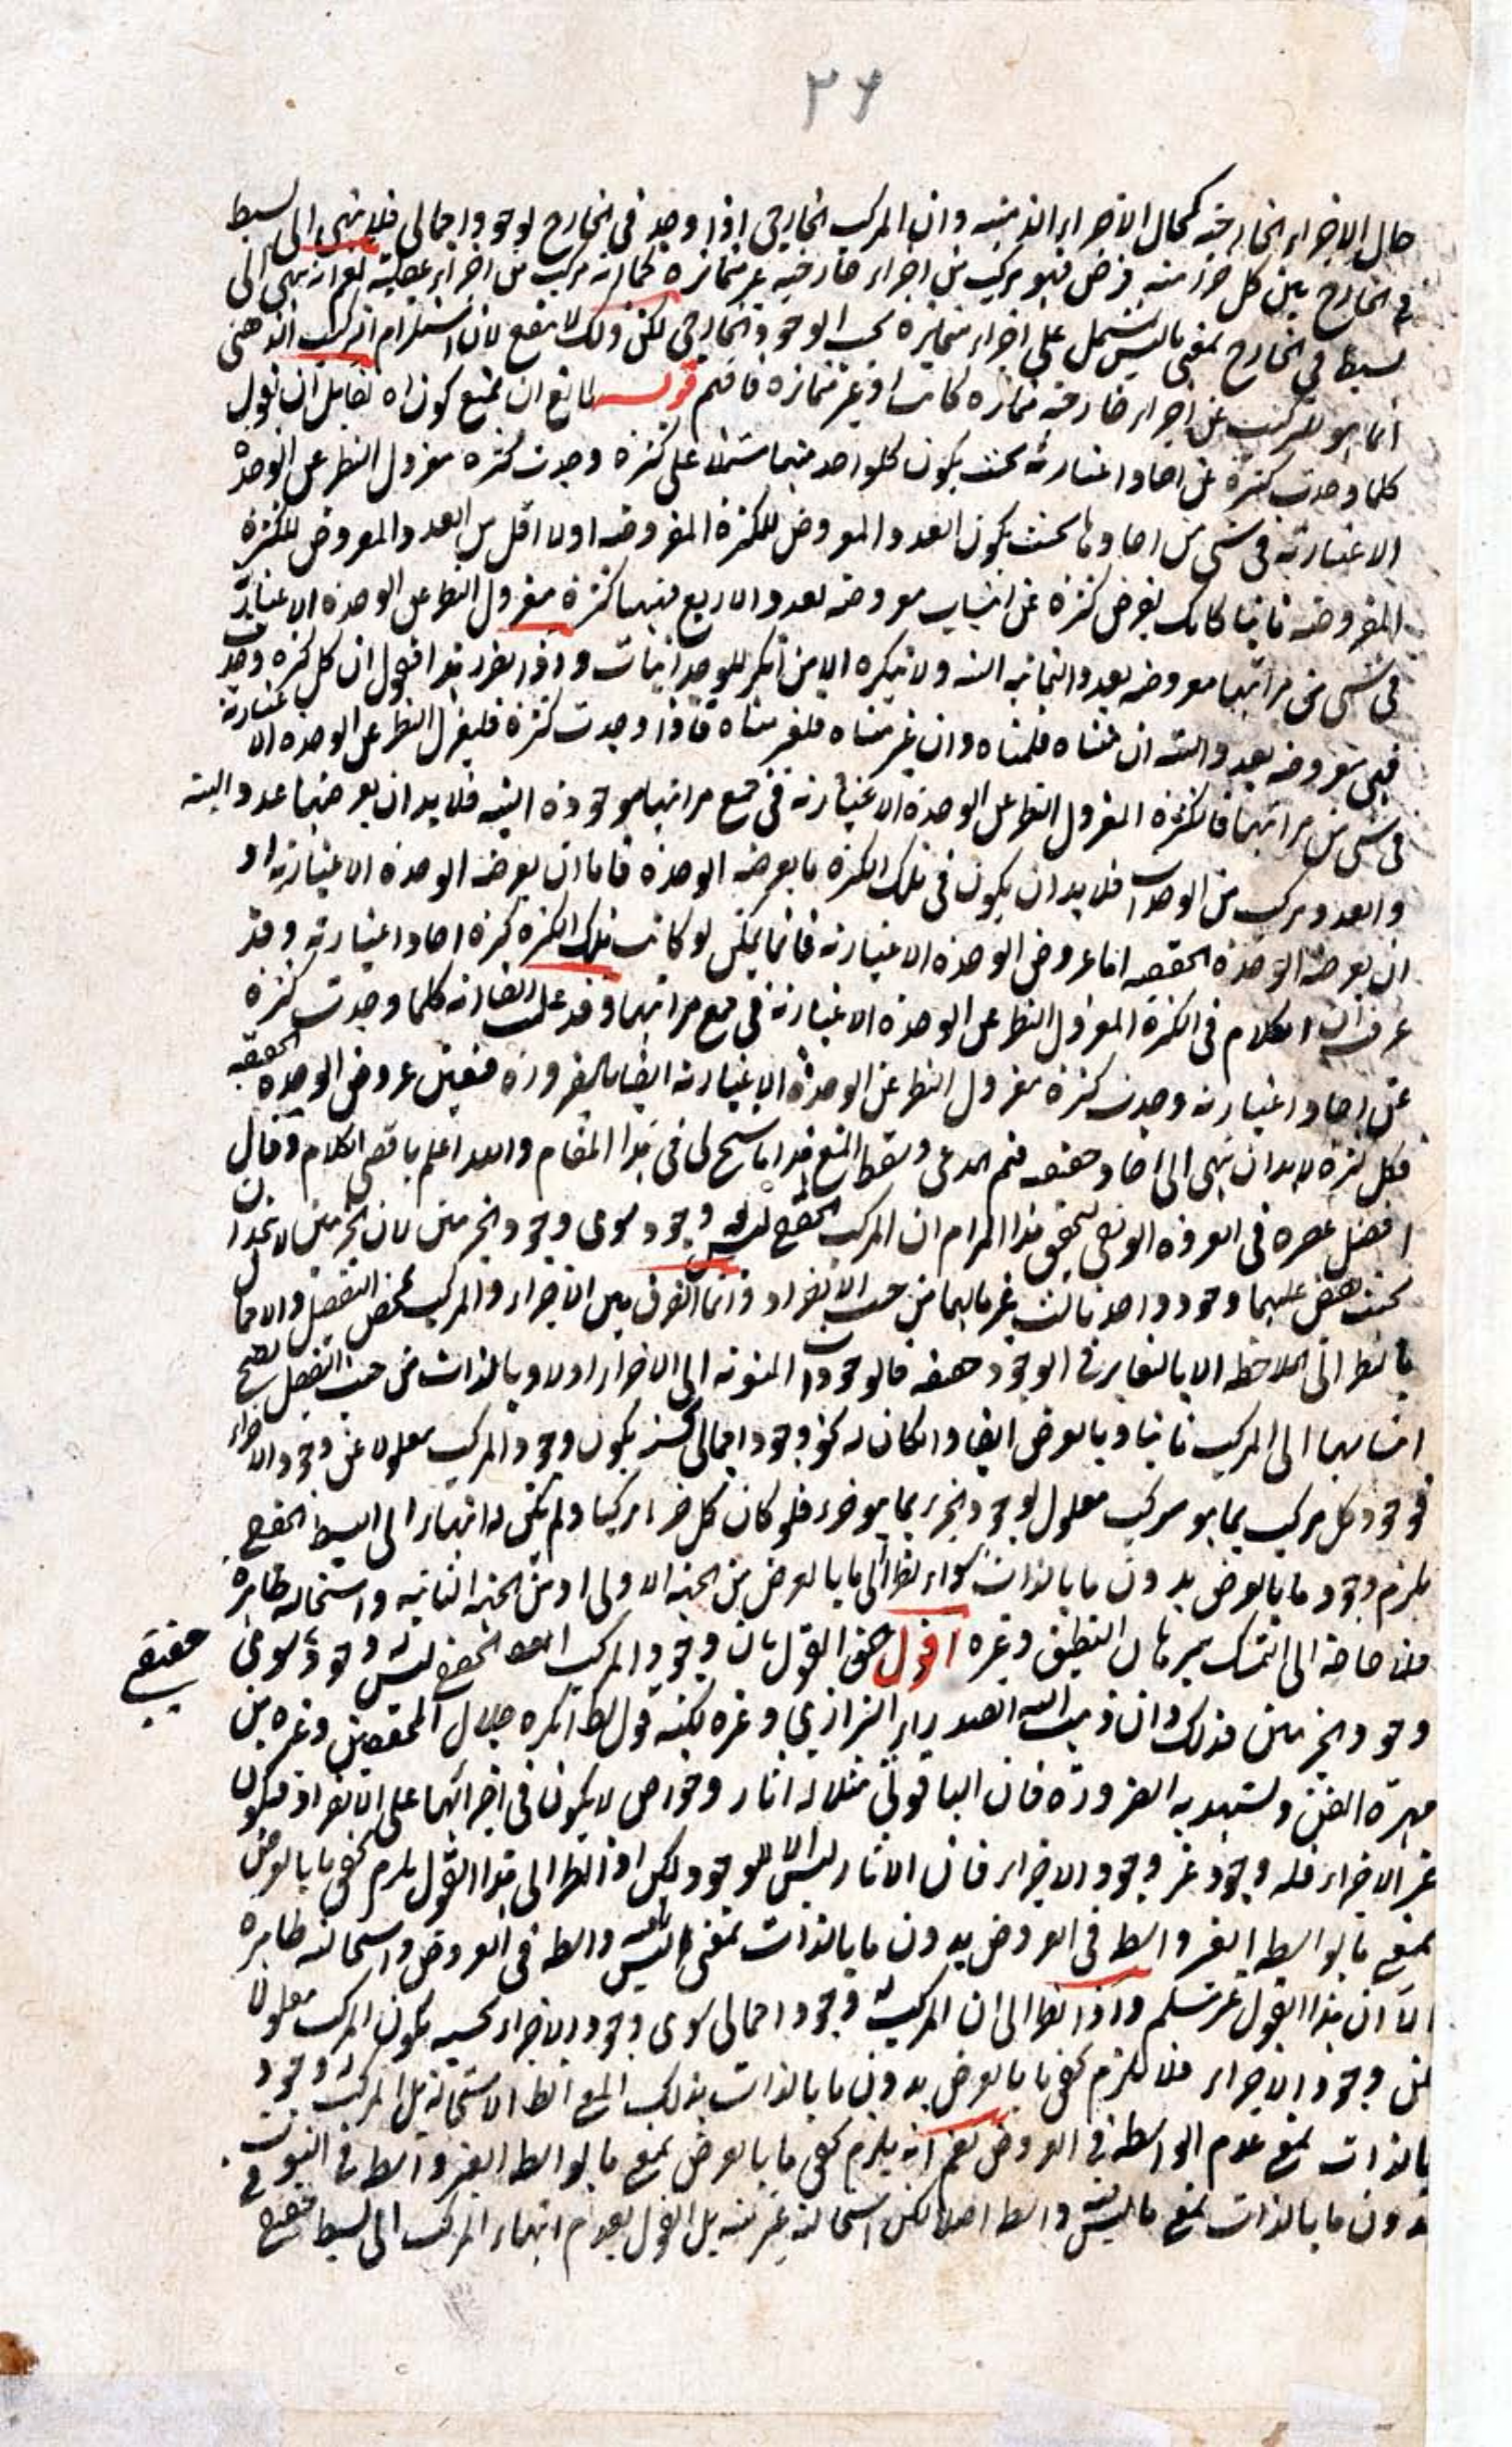 ٢٦
حال الاجزاء الخارجية كحال الاجزاء الذهنية وان المركب الخارجي اذا وجد في الخارج لوجود اجمالي فلا ينتهي الى بسيط
في الخارج بل كل جزء منه فرض فهو مركب من اجزاء خارجية غير متمايزة كما انه مركب من اجزاء عقلية نعم انه ينتهي الى
بسيط في الخارج بمعنى ما ليس يشتمل على اجزاء متمايزة بحسب الوجود الخارجي لكن ذلك لا ينفع لان استلزام التركب الذهني
انما هو للتركيب من اجزاء خارجية متمايزة كانت او غير متمايزة فافهم قوله لمانع ان يمنع كون اه لقايل ان يقول
كلما وجدت كثرة من احاد اعتبارية بحيث يكون كلواحد منها مشتملا على كثرة وجدت كثرة معزول النظر عن الوحدة
الاعتبارية في شئ من احادها بحيث يكون العدد المعروض للكثرة المفروضة اولا اقل من العدد المعروض للكثرة
المفروضة ثانيا كانك تفرض كثرة من معروضة لعدد الاربع فيها كثرة معزول النظر عن الوحدة الاعتبارية
في شئ من مراتبها معروضة لعدد الثمانية البتة ولا ينكره الا من انكر للوحدانيات واذا تقرر هذا فنقول ان كل كثرة وجدت
فهي معروضة لعدد البتة ان متناه فمتناه وان غير متناه فغير متناه فاذا وجدت كثرة فليعزل النظر عن الوحدة الاعتبارية
في شئ من مراتبها فالكثرة المعزول النظر عن الوحدة الاعتبارية في جميع مراتبها موجودة البتة فلا بد ان يعرضها عدد البتة
والعدد مركب من الوحدات فلا بد ان يكون في تلك الكثرة ما يعرضه الوحدة فاما ان يعرضه الوحدة الاعتبارية او
ان يعرضه الوحدة الحقيقية اما عروض الوحدة الاعتبارية فانما يمكن لو كانت تلك الكثرة كثرة احاد اعتبارية وقد
عرفت ان الكلام في الكثرة المعزول النظر عن الوحدة الاعتبارية في جميع مراتبها وقد علمت ايضا انه كلما وجدت كثرة
من احاد اعتبارية وجدت كثرة معزول النظر عن الوحدة الاعتبارية ايضا بالضرورة فتعين عروض الوحدة الحقيقية
فكل كثرة لا بد ان ينتهي الى احاد حقيقية فتم المدعى وسقط المنع هذا ما سنح لي في هذا المقام والله اعلم باقصى الكلام وقال
افضل عصره في العروة الوثقى لتحقيق هذا المرام ان المركب الحقيقي ليس له وجود سوى وجود الجزئين لان الجزئين لا يتحدان
بحيث يفيض عليهما وجود واحد ثالث غير ما لهما من حيث الانفراد وانما الفرق بين الاجزاء والمركب بمحض التفصيل والاجمال
بالنظر الى الملاحظة لا بالتغاير في الوجود حقيقة فالوجودات المنسوبة الى الاجزاء اولا وبالذات من حيث التفصيل يصح
انتسابها الى المركب ثانيا وبالعرض ايضا وان كان له نحو وجود اجمالي لكنه يكون وجود المركب معلولا عن وجود الاجزاء
فوجود كل مركب بما هو مركب معلول لوجود الجزء بما هو جزء فلو كان كل جزء مركبا ولم يكن له انتهاء الى البسيط الحقيقي
يلزم وجود ما بالعرض بدون ما بالذات سواء نظر الى ما بالعرض من الجهة الاولى او من الجهة الثانية واستحالته ظاهرة
فلا حاجة الى التمسك ببرهان التطبيق وغيره اقول حق القول بان وجود المركب الحقيقي ليس له وجود سوى
حقيقي
وجود الجزئين فذلك وان ذهب اليه الصدر الشيرازي وغيره لكنه قول انكره جلال المحققين وغيره من
مهرة الفن ويشهد به الضرورة فان الياقوتي مثلا له اثار وخواص لا يكون في اجزائها على الانفراد فيكون
غير الاجزاء فله وجود غير وجود الاجزاء فان الاثار ليس الا للوجود لكن اذا نظر الى هذا القول يلزم تحقق ما بالعرض
بمعنى ما بواسطة الغير واسطة في العروض بدون ما بالذات بمعنى ما ليس له واسطة في العروض واستحالته ظاهرة
الا ان هذا القول غير مسلم واذا نظر الى ان المركب له وجود اجمالي سوى وجود الاجزاء بحسبه يكون المركب معلولا
من وجود الاجزاء فلا يلزم تحقق ما بالعرض بدون ما بالذات بذلك المعنى الظاهر الاستحالة بل المركب له وجود
بالذات بمعنى عدم الواسطة في العروض نعم انه يلزم تحقق ما بالعرض بمعنى ما بواسطة الغير واسطة في الثبوت
بدون ما بالذات بمعنى ما ليس له واسطة اصلا لكن استحالته غير بينة بل القول بعدم انتهاء المركب الى بسيط حقيقي